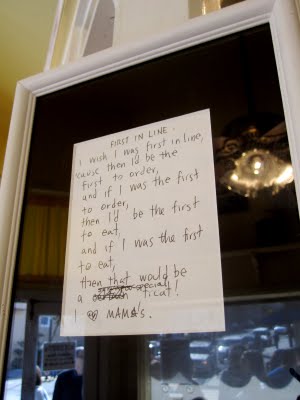 FIRST IN LINE.
I wish I was first in line,
'cause then I'd be the
first to order,
and if I was the first
to order,
then I'd be the first
to eat,
and if I was the first
to eat,
then that would be
a treat!
I MAMAS.